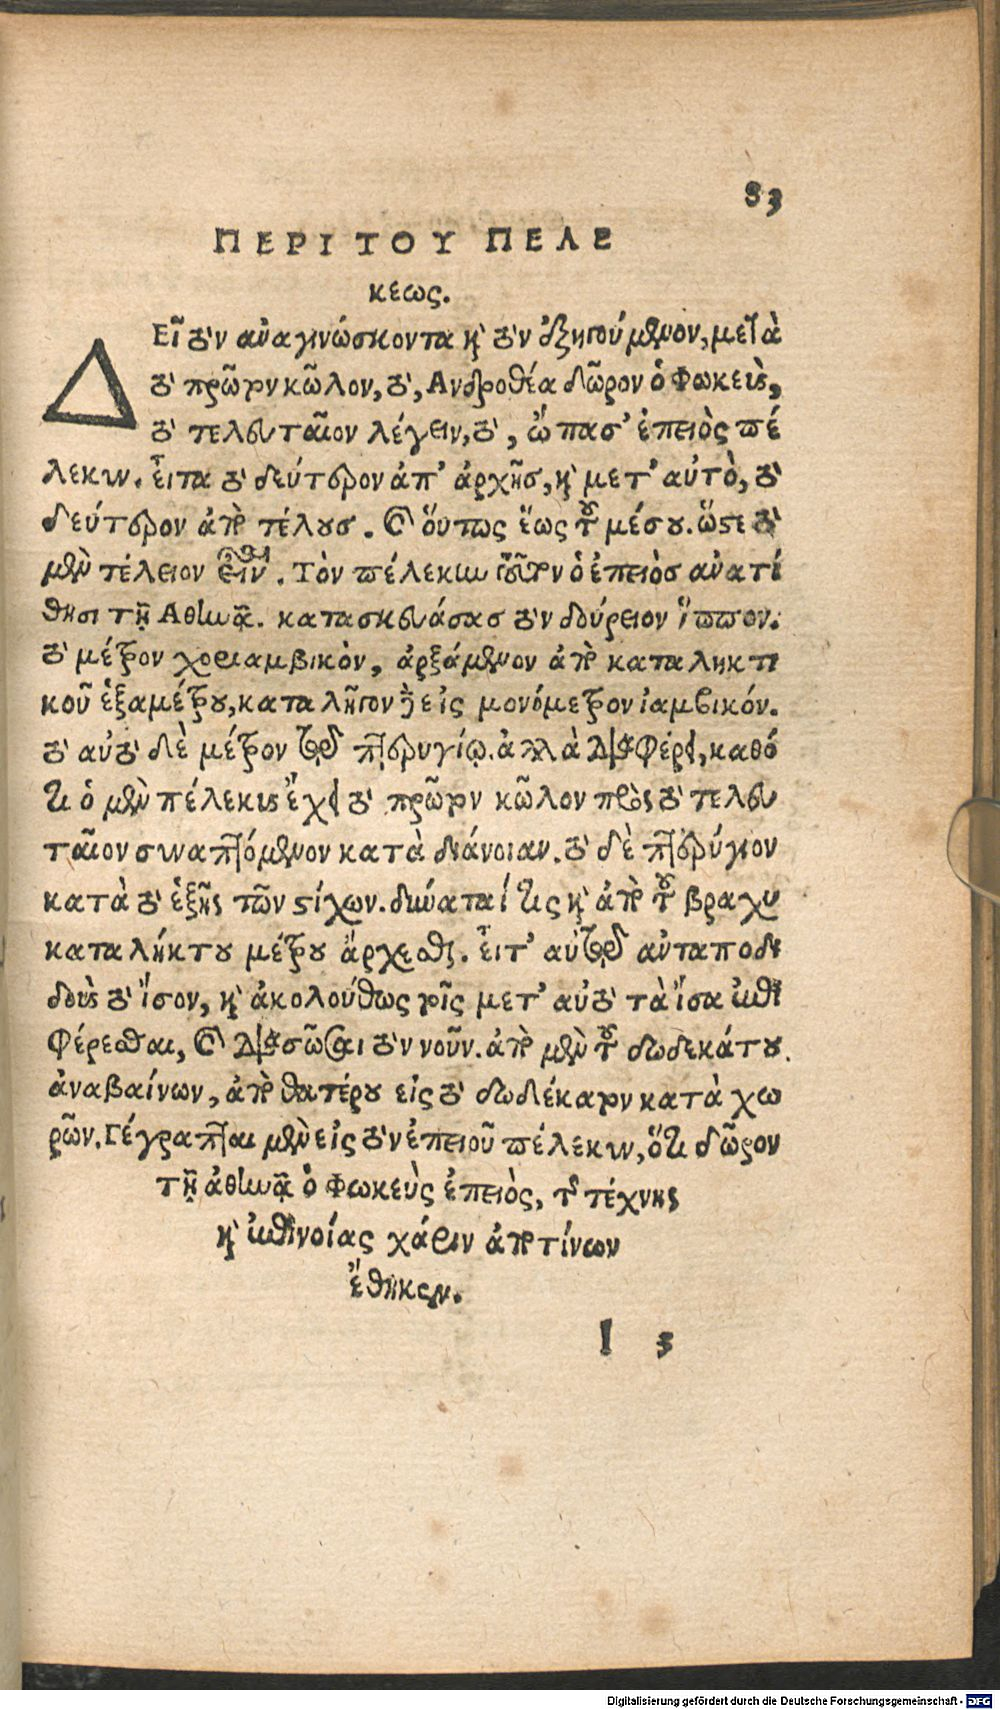 83
ΠΕΡΙ ΤΟΥ ΠΕΛΕ
κεως.
ΔΕῖ τὸν ἀναγινώσκοντα καὶ τὸν ἐξηγούμενον, μετὰ
τὸ πρῶτον κῶλον, τὸ, Ανδροθέα δῶρον ὁ Φωκεὺς,
τὸ τελευταῖον λέγειν, τὸ, ὤπασ' ἐπειὸς πέ
λεκιν. εἶτα τὸ δεύτερον ἀπ' ἀρχῆσ, καὶ μετ' αὐτὸ, τὸ
δεύτερον ἀπὸ τέλουσ. καὶ ὅυτως ἕως τοῦ μέσου. ὥστε τὸ
μὲν τέλειον εἶναι. Τὸν πέλεκυν τοῦτον ὁ ἐπειὸσ ἀνατί
θησι τῇ Αθηνᾷ. κατασκευάσασ τὸν δούρειον ἵππον.
τὸ μέτρον χοριαμβικὸν, ἀρξάμενον ἀπὸ καταληκτι
κοῦ ἑξαμέτρου, καταλῆγον δὲ εἰς μονόμετρον ἰαμβικόν.
τὸ αὐτὸ δὲ μέτρον τῷ πτερυγίῳ. ἀλλὰ διαφέρει, καθό
τι ὁ μὲν πέλεκυς ἔχει τὸ πρῶτον κῶλον πρὸς τὸ τελευ
ταῖον συναπτόμενον κατὰ διάνοιαν. τὸ δὲ πτερύγιον
κατὰ τὸ ἑξῆς τῶν στίχων. δύναταί τις καὶ ἀπὸ τοῦ βραχυ
καταλήκτου μέτρου ἄρχεσθαι. εἶτ' αὐτῷ ἀνταποδι
δοὺς τὸ ἴσον, καὶ ἀκολούθως τοῖς μετ' αὐτὸ τὰ ἴσα ἐπι
φέρεσθαι, καὶ διασῶσαι τὸν νοῦν. ἀπὸ μὲν τοῦ δωδεκάτου
ἀναβαίνων, ἀπὸ θατέρου εἰς τὸ δωδέκατον κατὰ χω
ρῶν. Γέγραπται μὲν εἰς τὸν ἐπειοῦ πέλεκυν, ὅτι δῶρον
τῇ ἀθηνᾷ ὁ Φωκεὺς ἐπειὸς, τῆς τέχνης
καὶ ἐπινοίας χάριν ἀποτίνων
ἔθηκεν.
l 3
Digitalisierung gefördert durch die Deutsche Forschungsgemeinschaft - DFG